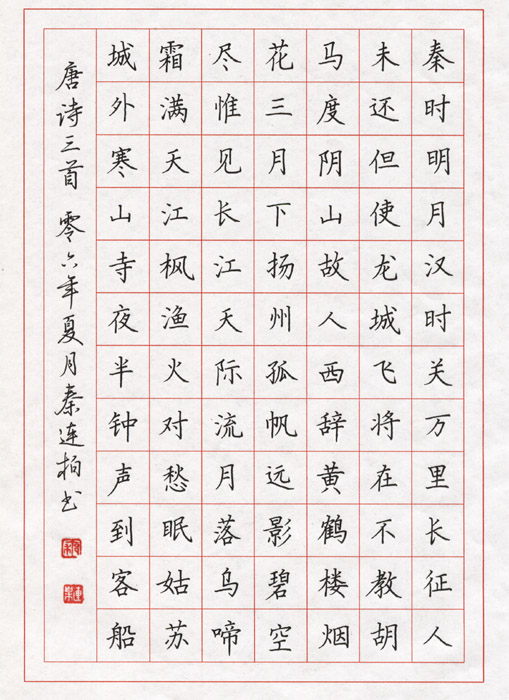 秦时明月汉时关万里长征人
未还但使龙城飞将在不教胡
马度阴山故人西辞黄鹤楼烟
花三月下扬州孤帆远影碧空
尽惟见长江天际流月落乌啼
霜满天江枫渔火对愁眠姑苏
城外寒山寺夜半钟声到客船
唐诗三首 零六年夏月秦连柏书